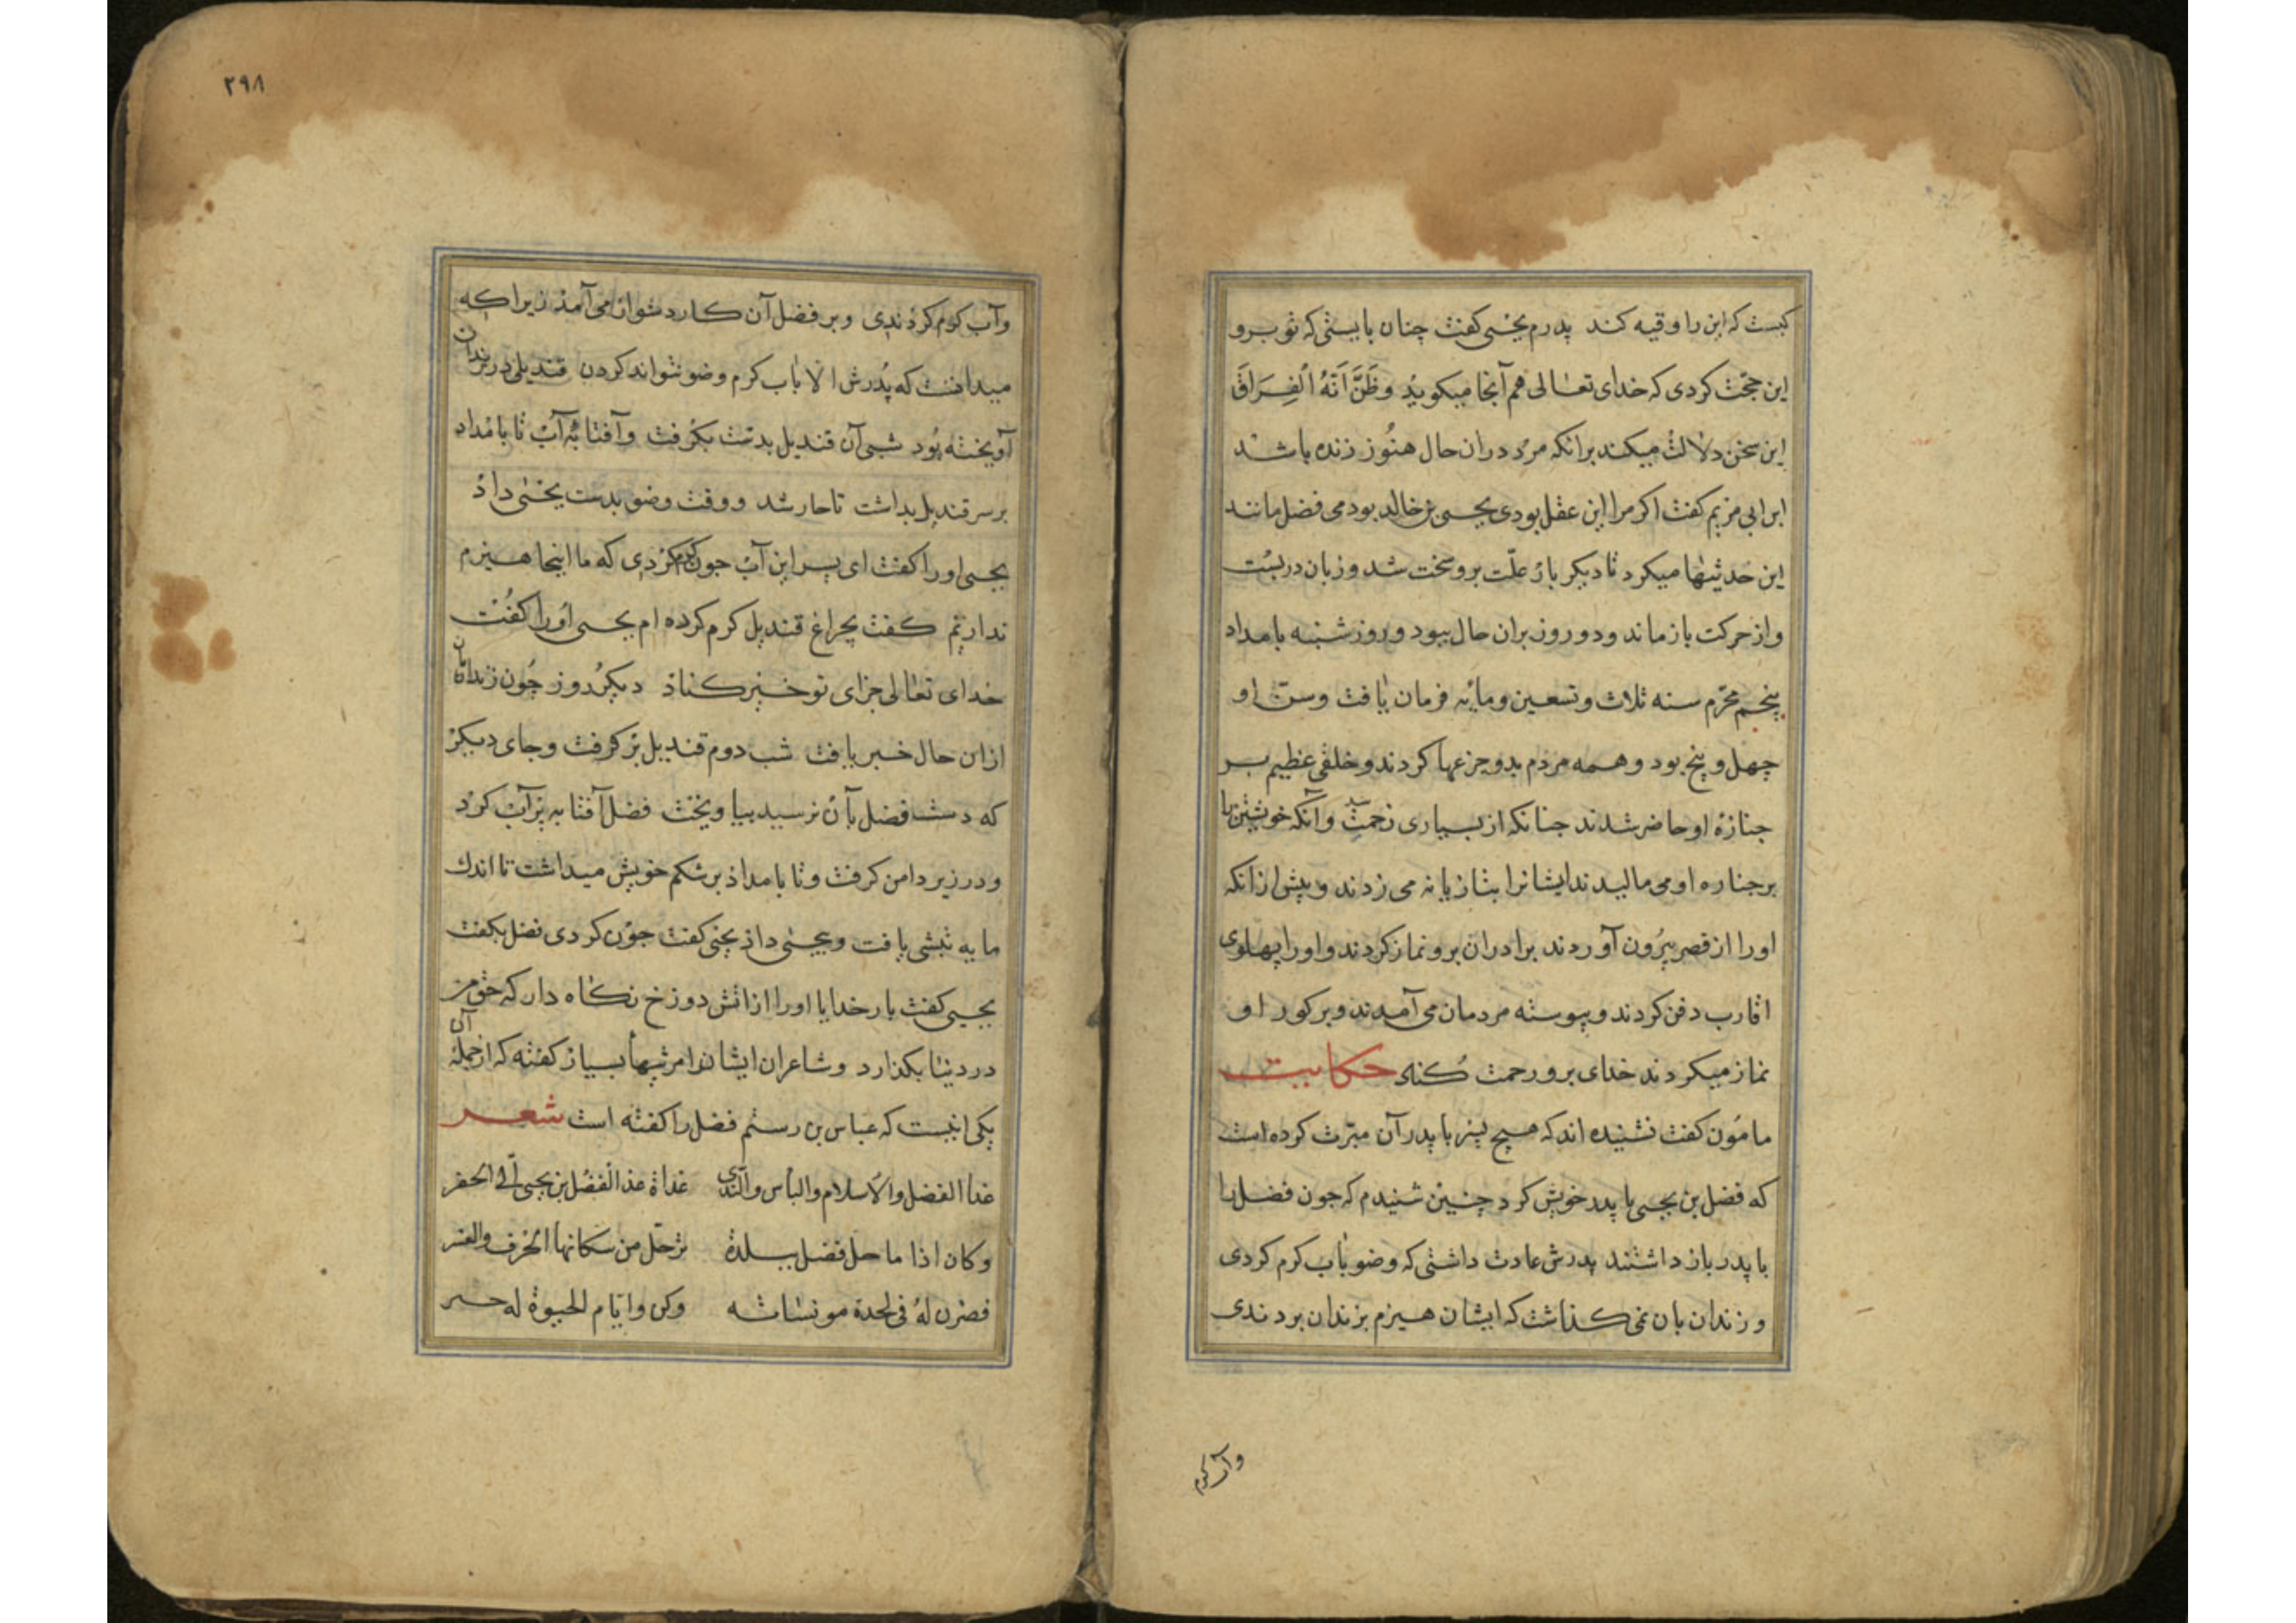 کیست که این را وقیه کند پدرم یحیی کفت چنان بایستی که تو برو
این حجّت کردی که خدای تعالی هم آنجا میکویذ وَظَنَّ اَنَّهُ الْفِرَاقَ
این سخن دلالت میکند برانکه مرد دران حال هنوز زنده باشد
ابن ابی مریم کفت اکر مرا این عقل بودی یحیی بن خالد بودمی فضل مانند
این حدیثها میکرد تا دیکر بار علّت برو سخت شد و زبان دربست
و از حرکت باز ماند و دو روز بران حال ببود و روز شنبه بامداد
پنجم محرّم سنه ثلاث و تسعین و مایه فرمان یافت و سن او
چهل و پنج بود و همه مردم بدو جزعها کردند و خلقی عظیم بر
جنازه او حاضر شدند جنانکه از بسیاری زحمت و آنکه خویشتن را
بر جنازه او می مالیدند ایشانرا بتازیانه می زدند و پیش ازانکه
اورا از قصر بیرون آوردند برادران برو نماز کردند و اورا پهلوی
اقارب دفن کردند و پیوسته مردمان می آمدند و بر کور او
نماز میکردند خدای برو رحمت کناد حکایت
مامون کفت نشنیده اند که هیچ پسر با پدر آن مبرّت کرده است
که فضل بن یحیی با پدر خویش کرد چنین شنیدم که جون فضل را
با پدر باز داشتند پدرش عادت داشتی که وضو بآب کرم کردی
و زندان بان نمی کذاشت که ایشان هیزم بزندان بردندی
وآب کرم
۲۹۸
وآب کرم کردندی و بر فضل آن کار دشوار می آمذ زیرا که
میدانست که پدرش الا بآب کرم وضو نتواند کردن قندیلی در زندان
آویخته بود شبی آن قندیل بدست بکرفت و آفتابه آب تا بامداد
بر سر قندیل بداشت تا حار شد و وقت وضو بدست یحیی داذ
یحیی اورا کفت ای پسر این آب جون کرم کردی که ما اینجا هیزم
نداریم کفت بچراغ قندیل کرم کرده ام یحیی اورا کفت
خدای تعالی جزای تو خیر کناذ دیکر روز چون زندان بان
ازان حال خبر یافت شب دوم قندیل بر کرفت و جای دیکر
که دست فضل بآن نرسید بیاویخت فضل آفتابه پر آب کرد
و در زیر دامن کرفت و تا بامداذ بر شکم خویش میداشت تا اندك
مایه تبشی یافت و بیحیی داذ یحیی کفت جون کردی فضل بکفت
یحیی کفت بار خدایا اورا از اتش دوزخ نکاه دار که حق من
در دنیا بکذارد و شاعران ایشانرا مرثیها بسیار کفته که از جمله آن
یکی اینست که عباس بن رستم فضل را کفته است شعـر
غدا الفضل والاسلام والبأس والندی غداة غذا الفضل بن یحیی الی الحفر
وکان اذا ما حل فضل ببلدة ترحّل من سکانها الخوف والفقر
فصرن له فی لحدة مونساته وکن وایام الحیوة له